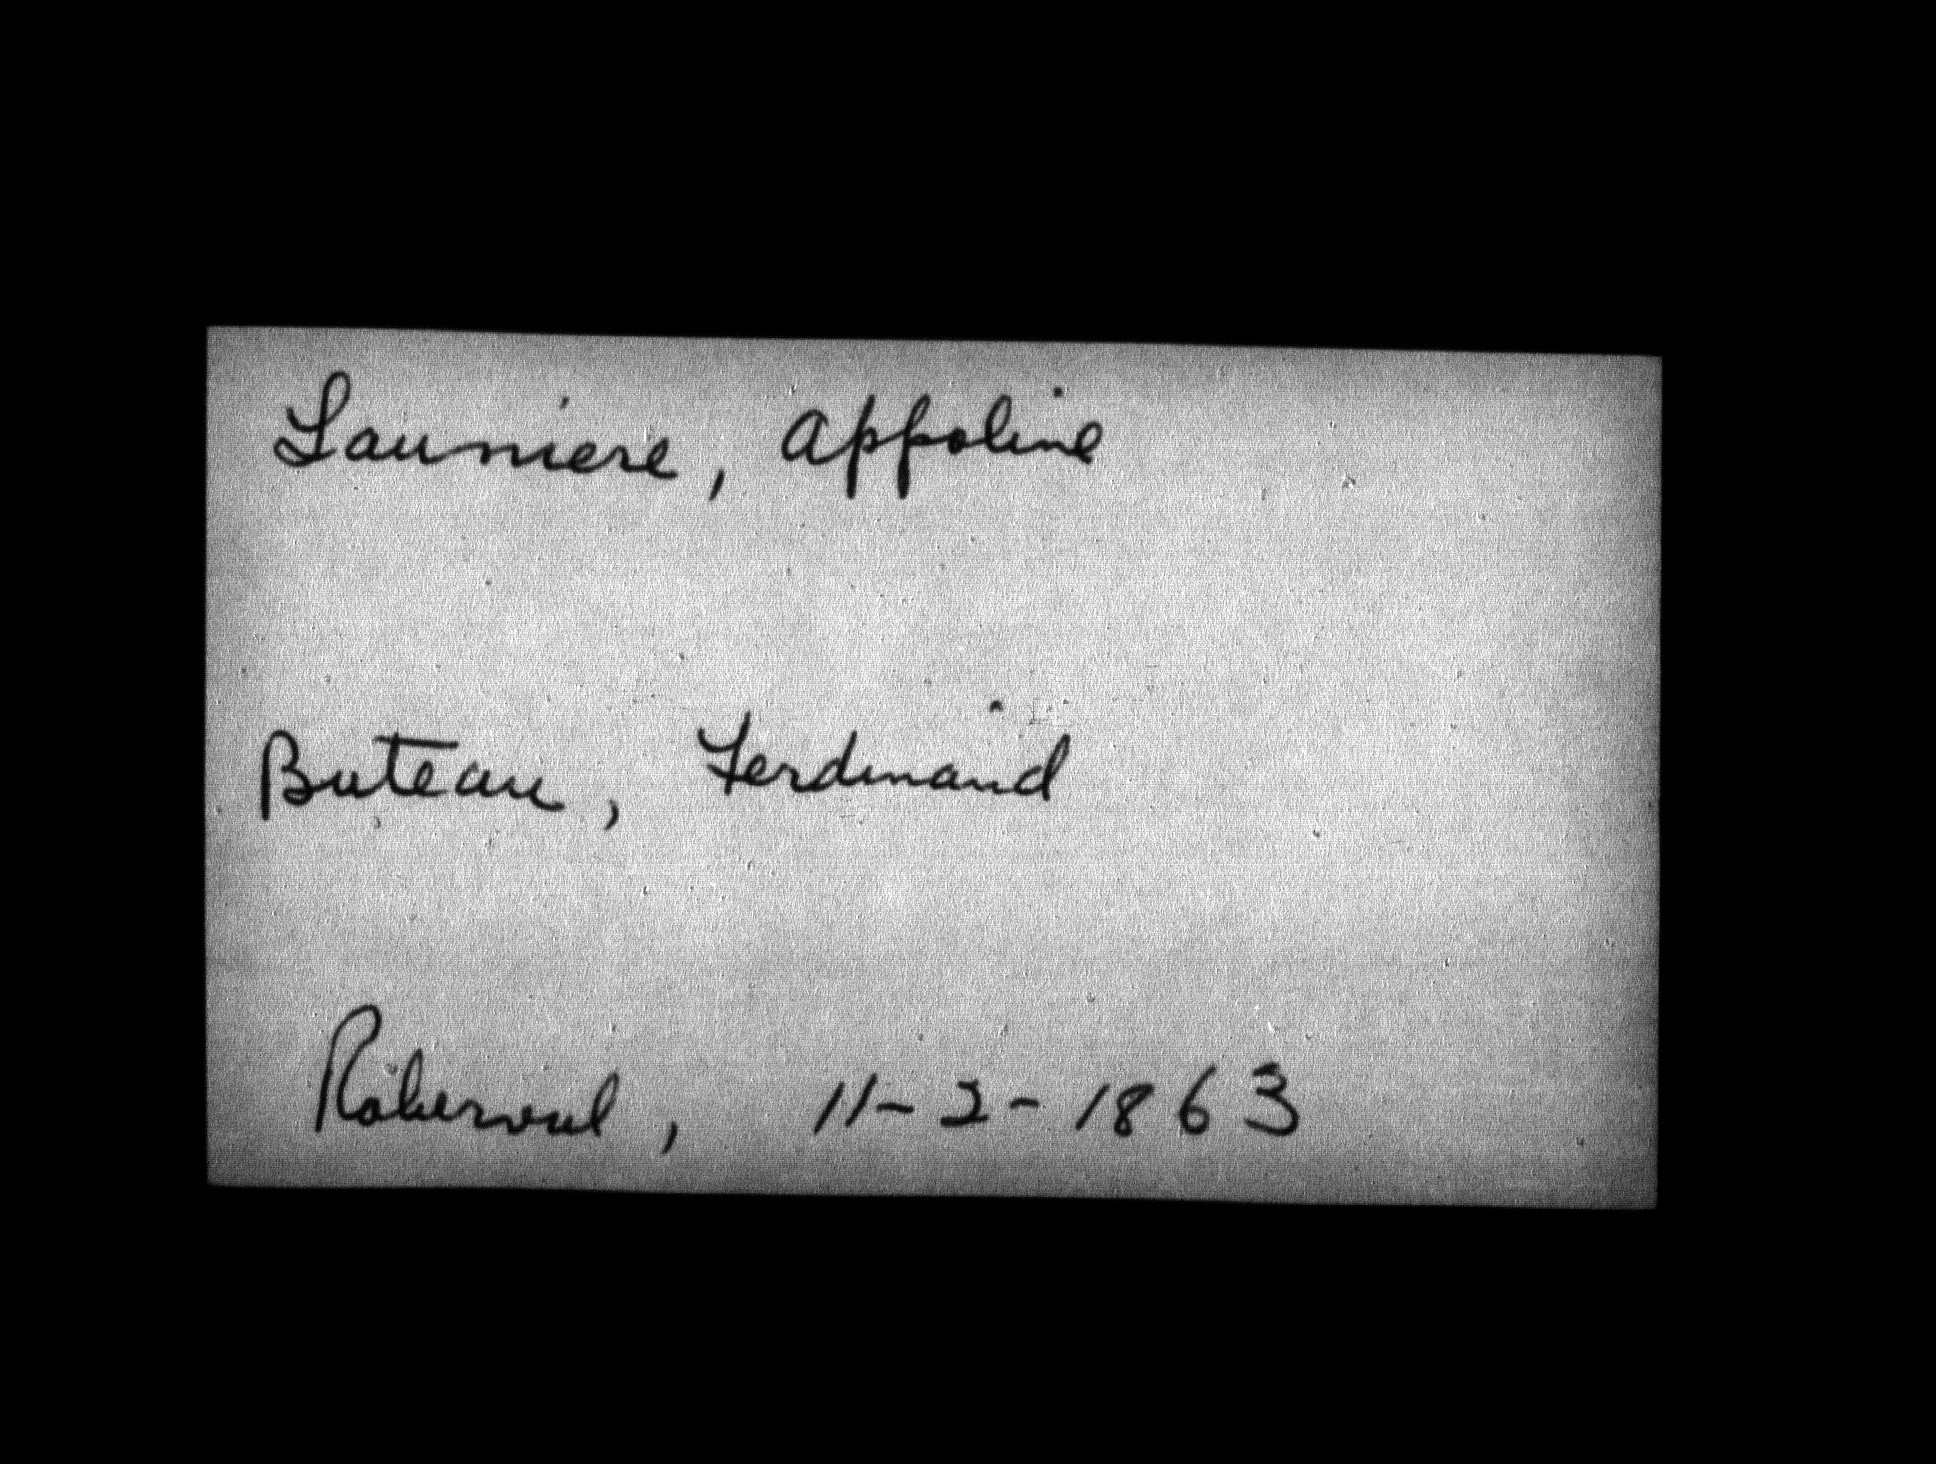 Launiere, Appoline
Buteau, Ferdinand
Roberval, 11-2-1863